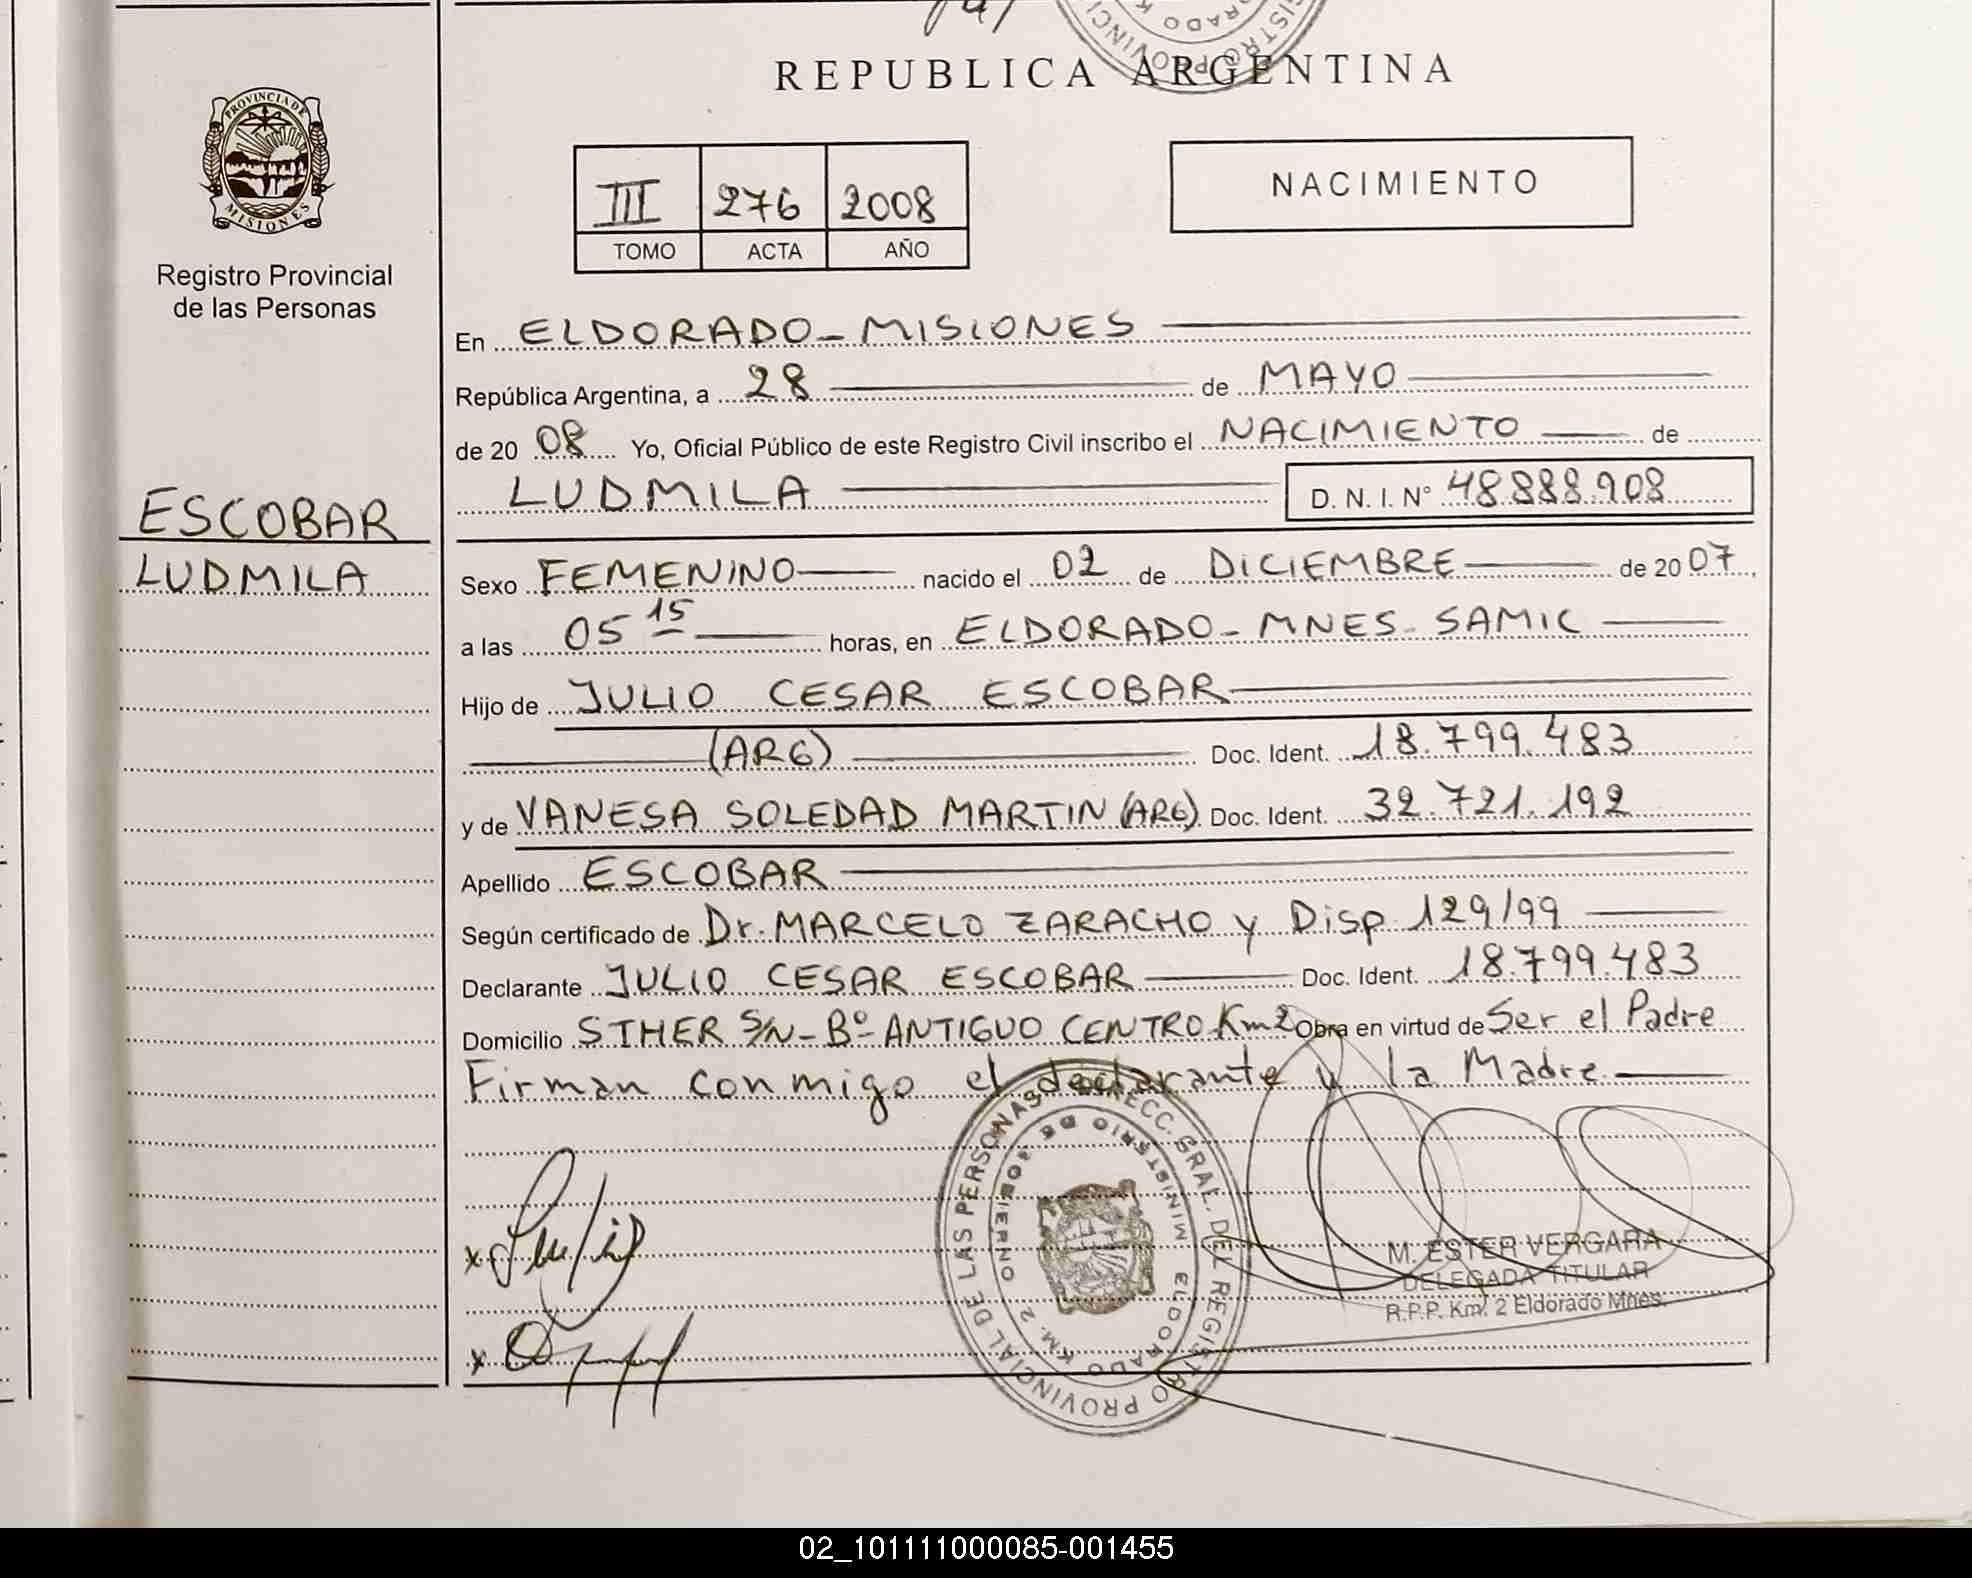 REPUBLICA ARGENTINA
PROVINCIA DE
MISIONES
Registro Provincial
de las Personas
III 276 2008
TOMO ACTA AÑO
NACIMIENTO
ESCOBAR
LUDMILA
En ELDORADO - MISIONES
República Argentina, a 28 de MAYO
de 20 08 Yo, Oficial Público de este Registro Civil inscribo el NACIMIENTO de
LUDMILA D. N. I. N° 48.888.908
Sexo FEMENINO nacido el 02 de DICIEMBRE de 20 07
a las 05 15 horas, en ELDORADO - MNES - SAMIC
Hijo de JULIO CESAR ESCOBAR
(ARG) Doc. Ident. 18.799.483
y de VANESA SOLEDAD MARTIN (ARG) Doc. Ident. 32.721.192
Apellido ESCOBAR
Según certificado de Dr. MARCELO ZARACHO y Disp 129/99
Declarante JULIO CESAR ESCOBAR Doc. Ident. 18.799.483
Domicilio STHER S/N - Bº ANTIGUO CENTRO Km2 Obra en virtud de Ser el Padre
Firman conmigo el declarante y la Madre
DIRECC. GRAL. DEL REGISTRO PROVINCIAL DE LAS PERSONAS
MINISTERIO DE GOBIERNO
ELDORADO KM. 2
M. ESTER VERGARA
DELEGADA TITULAR
R.P.P. Km. 2 Eldorado Mnes.
02_101111000085-001455